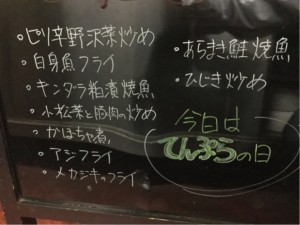 ・ピリ辛野沢菜炒め
・白身魚フライ
・キンダラ粕漬焼魚
・小松菜と豚肉の炒め
・かぼちゃ煮
・アジフライ
・メカジキのフライ
・あらまき鮭焼魚
・ひじき炒め
今日は
てんぷらの日